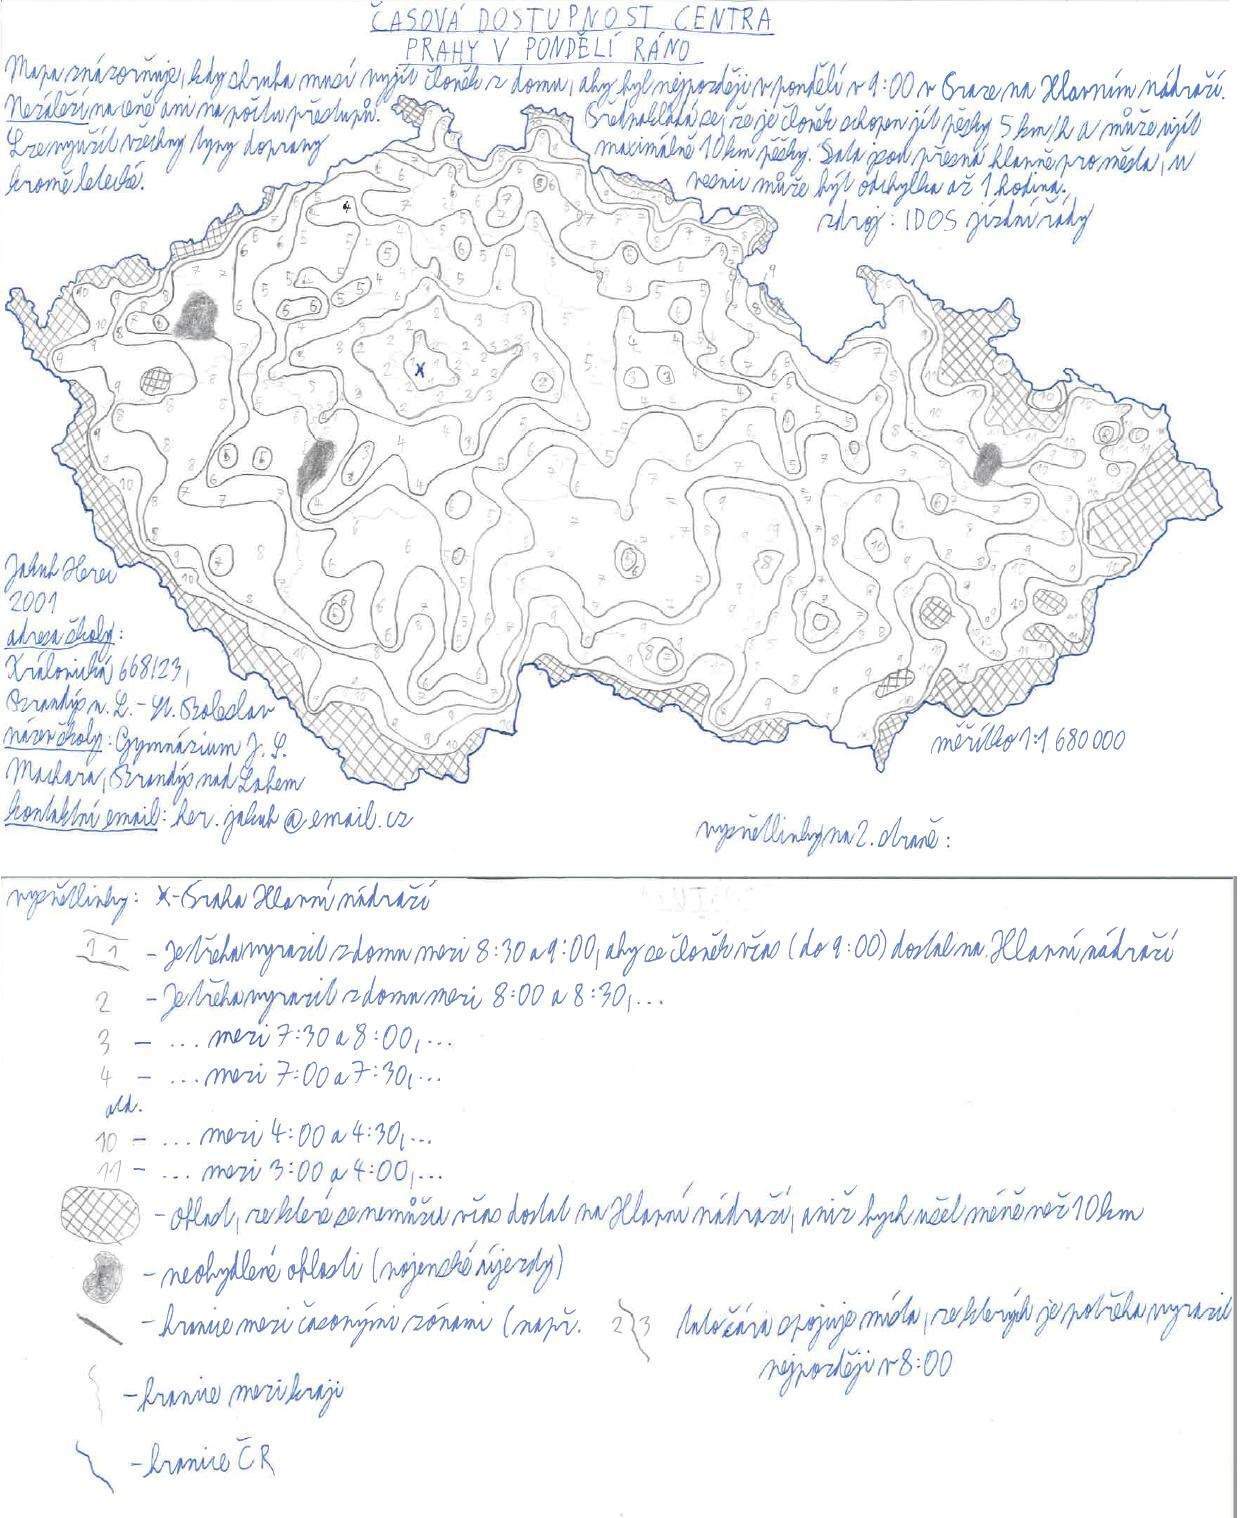 ČASOVÁ DOSTUPNOST CENTRA
PRAHY V PONDĚLÍ RÁNO
Mapa znázorňuje, kdy zhruba musí vyjít člověk z domu, aby byl nejpozději v pondělí v 9:00 v Praze na Hlavním nádraží.
Nezáleží na ceně ani na počtu přestupů.
Předpokládá se, že je člověk schopen jít pěšky 5 km/h a může ujít
Lze využít všechny typy dopravy
maximálně 10 km pěšky. Data jsou přesná hlavně pro města, u
kromě letecké.
vesnic může být odchylka až 1 hodina.
zdroj: IDOS jízdní řády
Jakub Herec
2001
adresa školy:
Královická 668/23,
Brandýs n. L. - St. Boleslav
název školy: Gymnázium J. S.
Machara, Brandýs nad Labem
kontaktní email: her.jakub@email.cz
měřítko 1:1 680 000
vysvětlivky na 2. straně:
vysvětlivky: X - Praha Hlavní nádraží
11 - Je třeba vyrazit z domu mezi 8:30 a 9:00, aby se člověk včas (do 9:00) dostal na Hlavní nádraží
2 - Je třeba vyrazit z domu mezi 8:00 a 8:30,...
3 - ... mezi 7:30 a 8:00,...
4 - ... mezi 7:00 a 7:30,...
atd.
10 - ... mezi 4:00 a 4:30,...
11 - ... mezi 3:00 a 4:00,...
- oblast, ze které se nemůžu včas dostat na Hlavní nádraží, aniž bych ušel méně než 10 km
- neobydlené oblasti (vojenské újezdy)
- hranice mezi časovými zónami (např. 2 3 tato čára spojuje místa, ze kterých je potřeba vyrazit
nejpozději v 8:00
- hranice mezi kraji
- hranice ČR